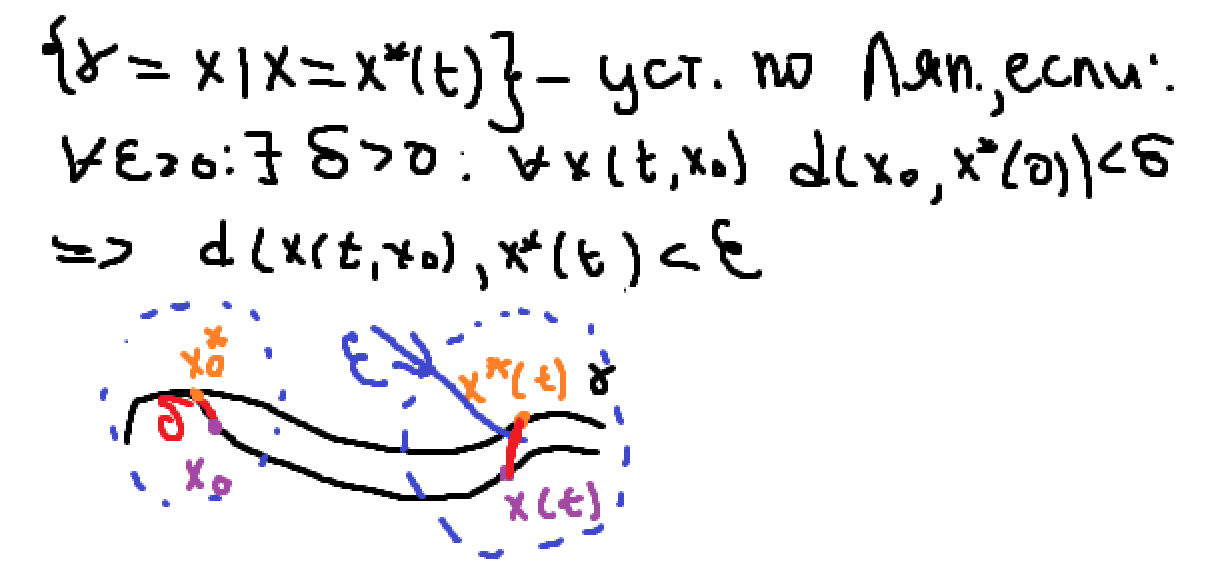 {γ = x | x = x*(t)} – уст. по Ляп., если:
∀ε>0: ∃ δ>0 : ∀ x(t,x₀) d(x₀, x*(0))<δ
=> d(x(t,x₀), x*(t) < ε
x₀* ε x*(t) γ
δ
x₀ x(t)